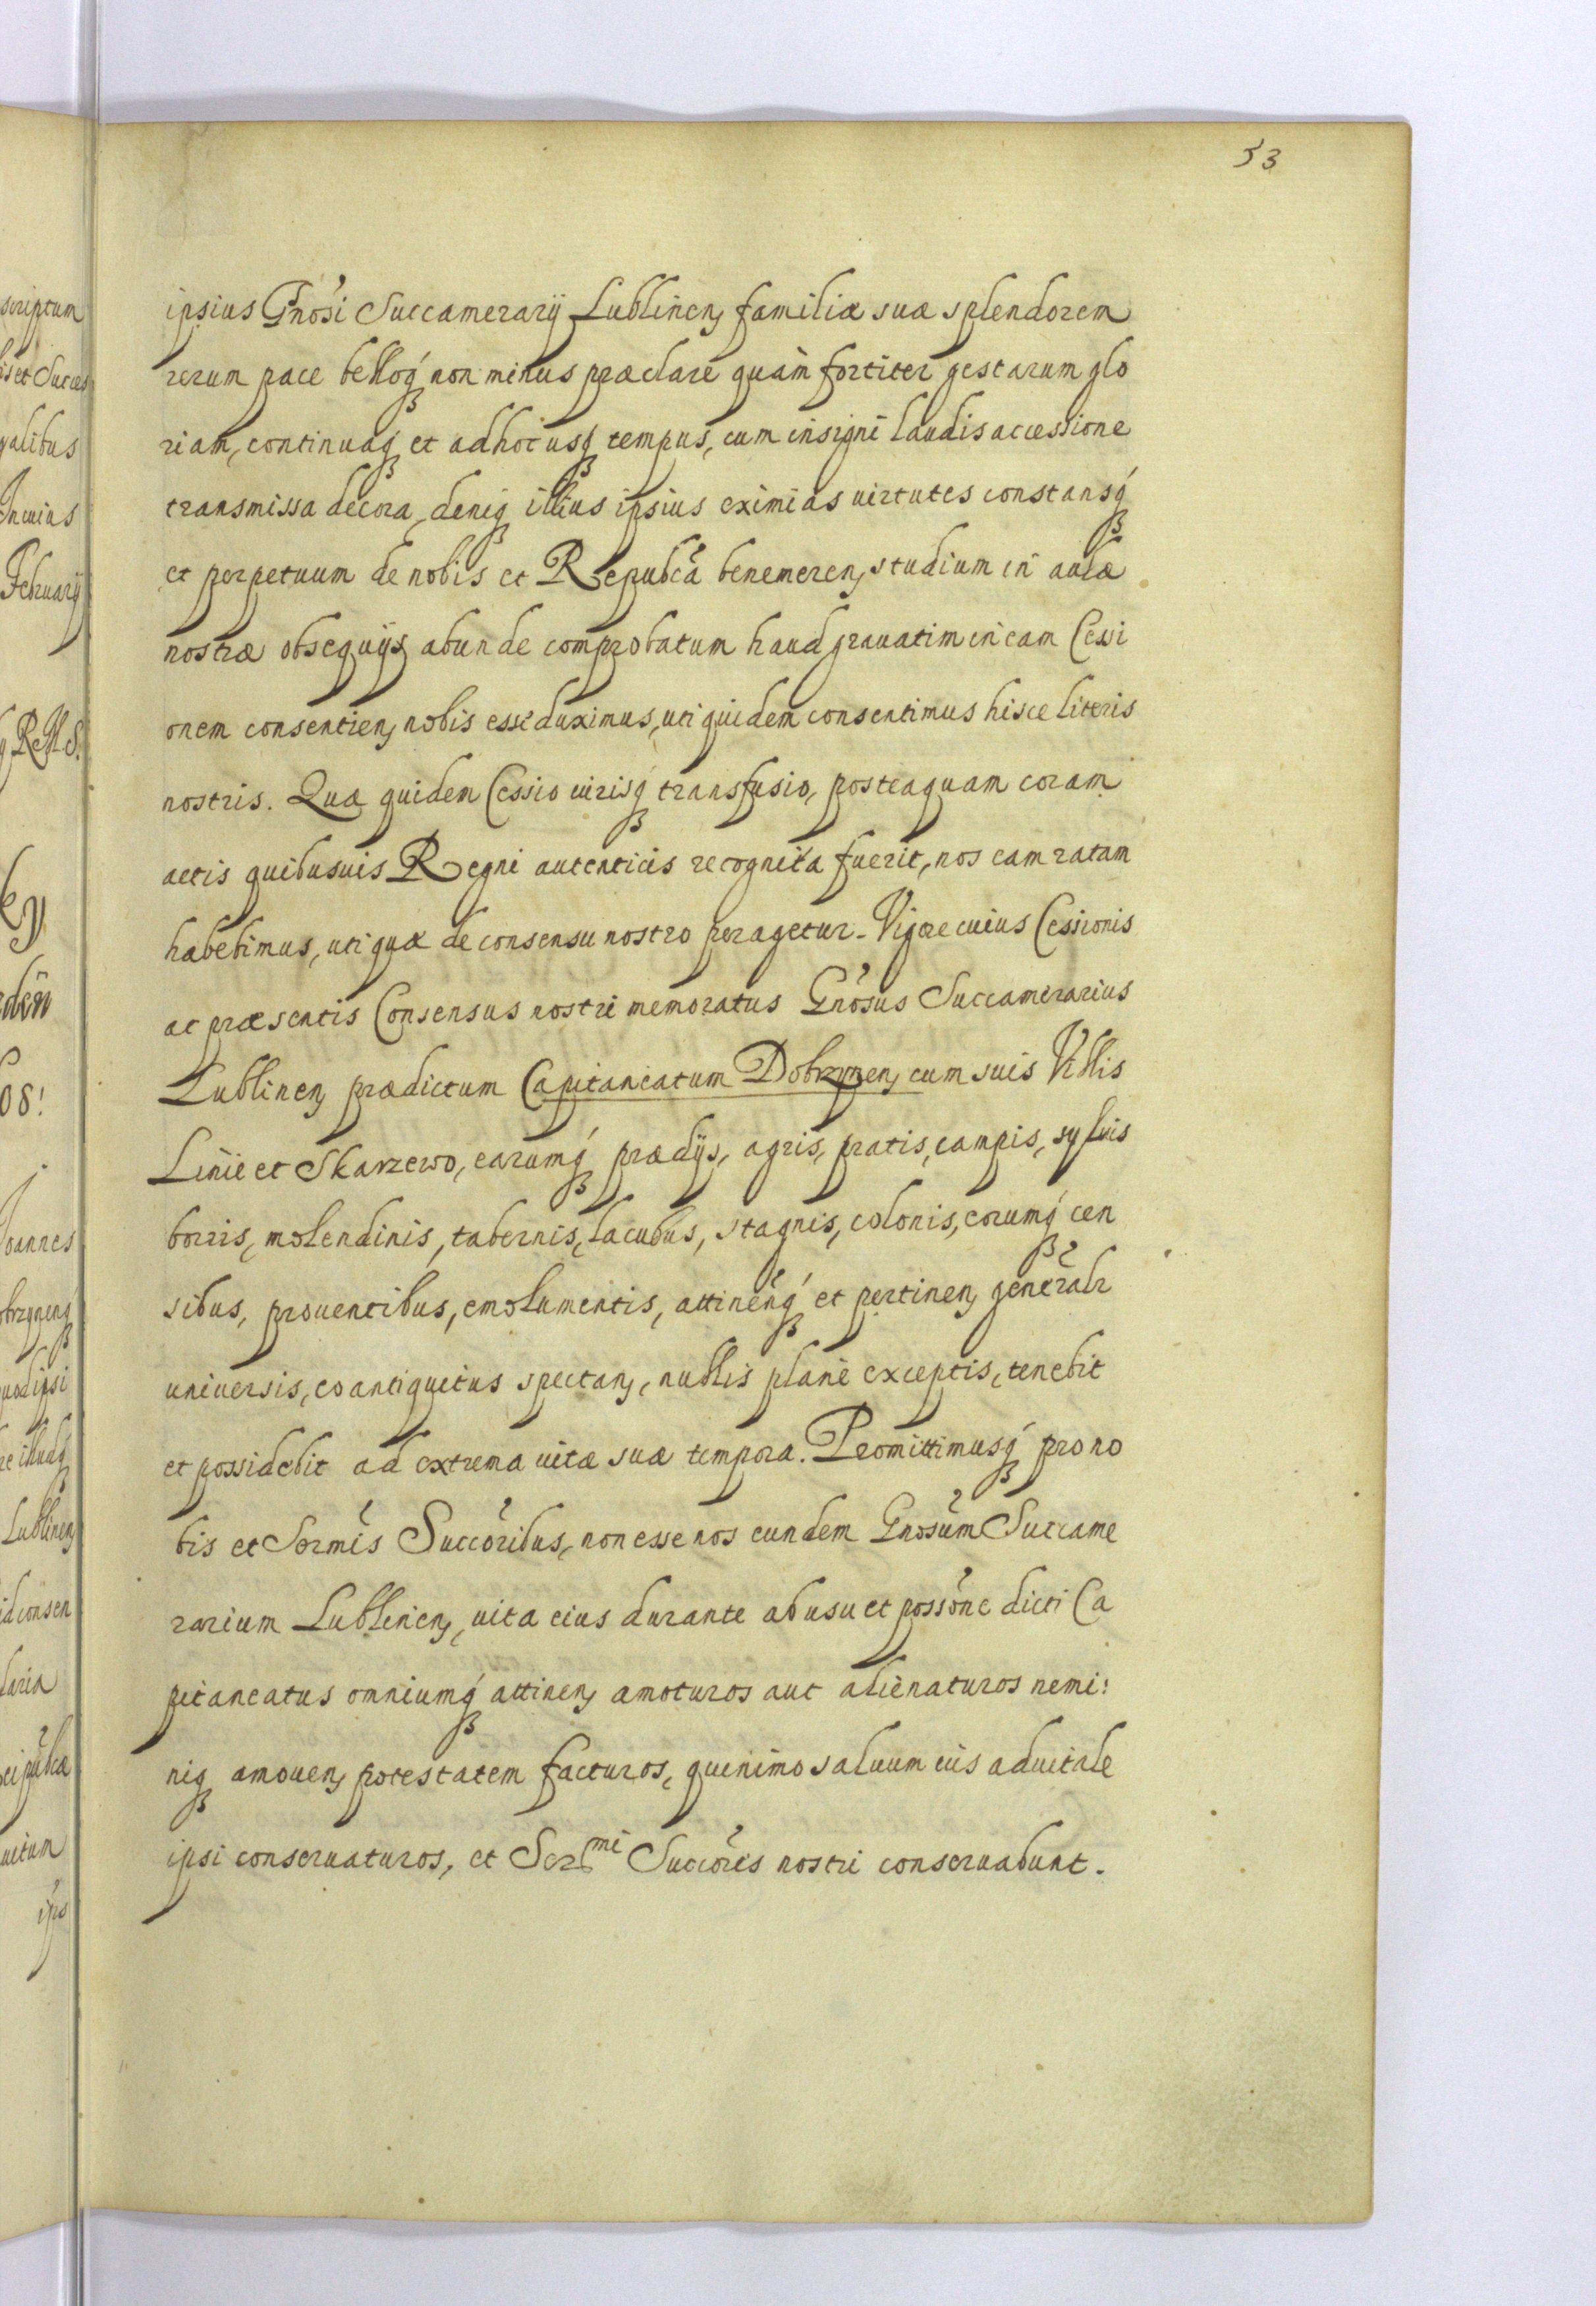 53
ipsius Gnosi Succamerarij Lublinen, familiæ suæ splendorem
rerum pace belloq́ non minus præclare quàm fortiter gestarum glo
riam, continuaq et adhoc usq tempus, cum insigni laudis accessione
transmissa decora, deniq illius ipsius eximias uirtutes constansq́
et perpetuum de nobis et Republca benemeren, studium in aulæ
nostræ obsequijs abunde comprobatum haud grauatim in eam Cessi
onem consentien, nobis esse duximus, uti quidem consentimus hisce literis
nostris. Quæ quidem Cessio iurisq́ transfusio, posteaquam coram
actis quibusuis Regni autenticis recognita fuerit, nos eam ratam
habebimus, uti quæ de consensu nostro peragetur. Vigore cuius Cessionis
ac præsentis Consensus nostri memoratus Gnosus Succamerarius
Lublinen, prædictum Capitaneatum Dobrzynen, cum suis Villis
Linie et Skarzewo, earumq́ prædijs, agris, pratis, campis, syluis
borris, molendinis, tabernis, lacubus, stagnis, colonis, eorumq́ cen
sibus, prouentibus, emolumentis, attinenq́ et pertinen, generalr
uniuersis, eo antiquitus spectan, nullis planè exceptis, tenebit
et possidebit ad extrema uitæ suæ tempora. Promittimusq́ pro no
bis et Sermis Succoribus, non esse nos eundem Gnosum Succame
rarium Lublinen, uita eius durante ab usu et possone dicti Ca
pitaneatus omniumq́ attinen, amoturos aut alienaturos nemi:
niq amouen, potestatem facturos, quinimo saluum ius aduitale
ipsi conseruaturos, et Sermi Succores nostri conseruabunt.